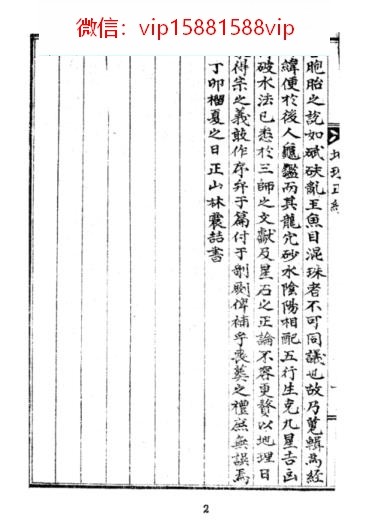 微信：vip15881588vip
胞胎之說如碔砆亂玉魚目混珠者不可同議也故乃蒐輯為經
緯便於後人龜鑑而其龍穴砂水陰陽相配五行生克九星吉凶
破水法已悉於三師之文獻及星石之正論不容更贅以地理日
得宗之義敢作序弁于篇付于剞劂俾補乎喪葬之禮庶無誤焉
丁卯榴夏之日正山林震喆書
2